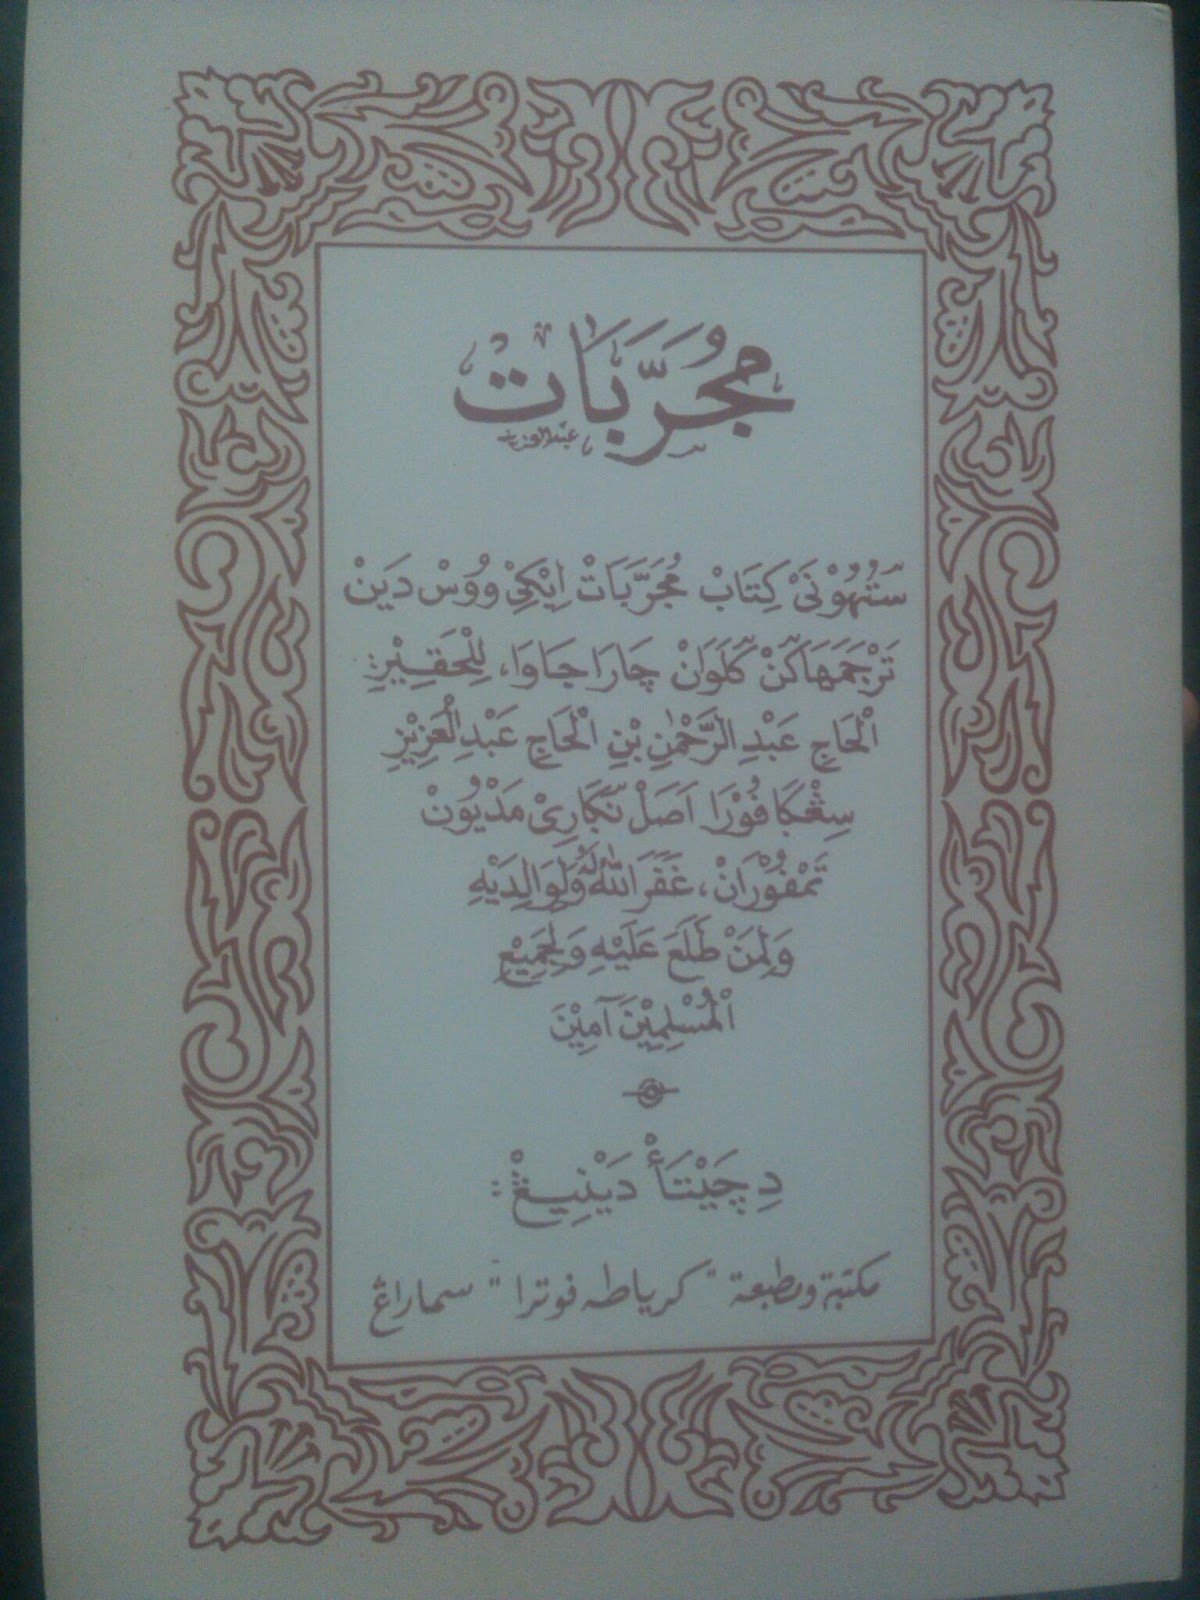 مُجَرَّبَاتْ
سَتُهُوْنَىْ كِتَابْ مُجَرَّبَاتْ اِيْكِيْ ووُسْ دَيْنْ
تَرْجَمَهَاكَنْ كَلَوَانْ چَارَا جَاوَا، لِلْحَقِيْرِ
الْحَاجِ عَبْدِ الرَّحْمٰنِ بْنِ الْحَاجِ عَبْدِ الْعَزِيْزِ
سِڠْكَافُوْرَا اَصَلْ نَݢَارِيْ مَدْيُوْنْ
تَمْفُوْرَانْ، غَفَرَ اللهُ لَهُ وَلِوَالِدَيْهِ
وَلِمَنْ طَلَعَ عَلَيْهِ وَلِجَمِيْعِ
الْمُسْلِمِيْنَ آمِيْنَ
دِچَيْتَاْ دَيْنِيڠْ :
مكتبة ومطبعة "كرياطه فوترا" سماراڠ